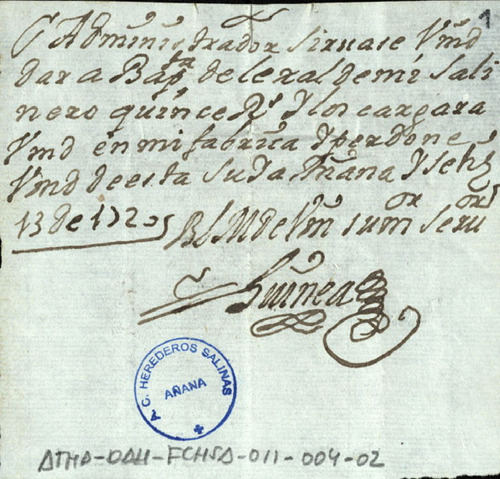 1
Administrador siruase Vmd
dar a Bap.ta de leral de mi Sali
nero quince Rs Y los cargara
Vmd en mi fabrica Y perdone
Vmd de esta su Ja Añana Y
13 de 172
BLM de Vm su mor seru
Guinea
A. C. HEREDEROS SALINAS
AÑANA
ATHA-DAH-FCHSA-011-004-02